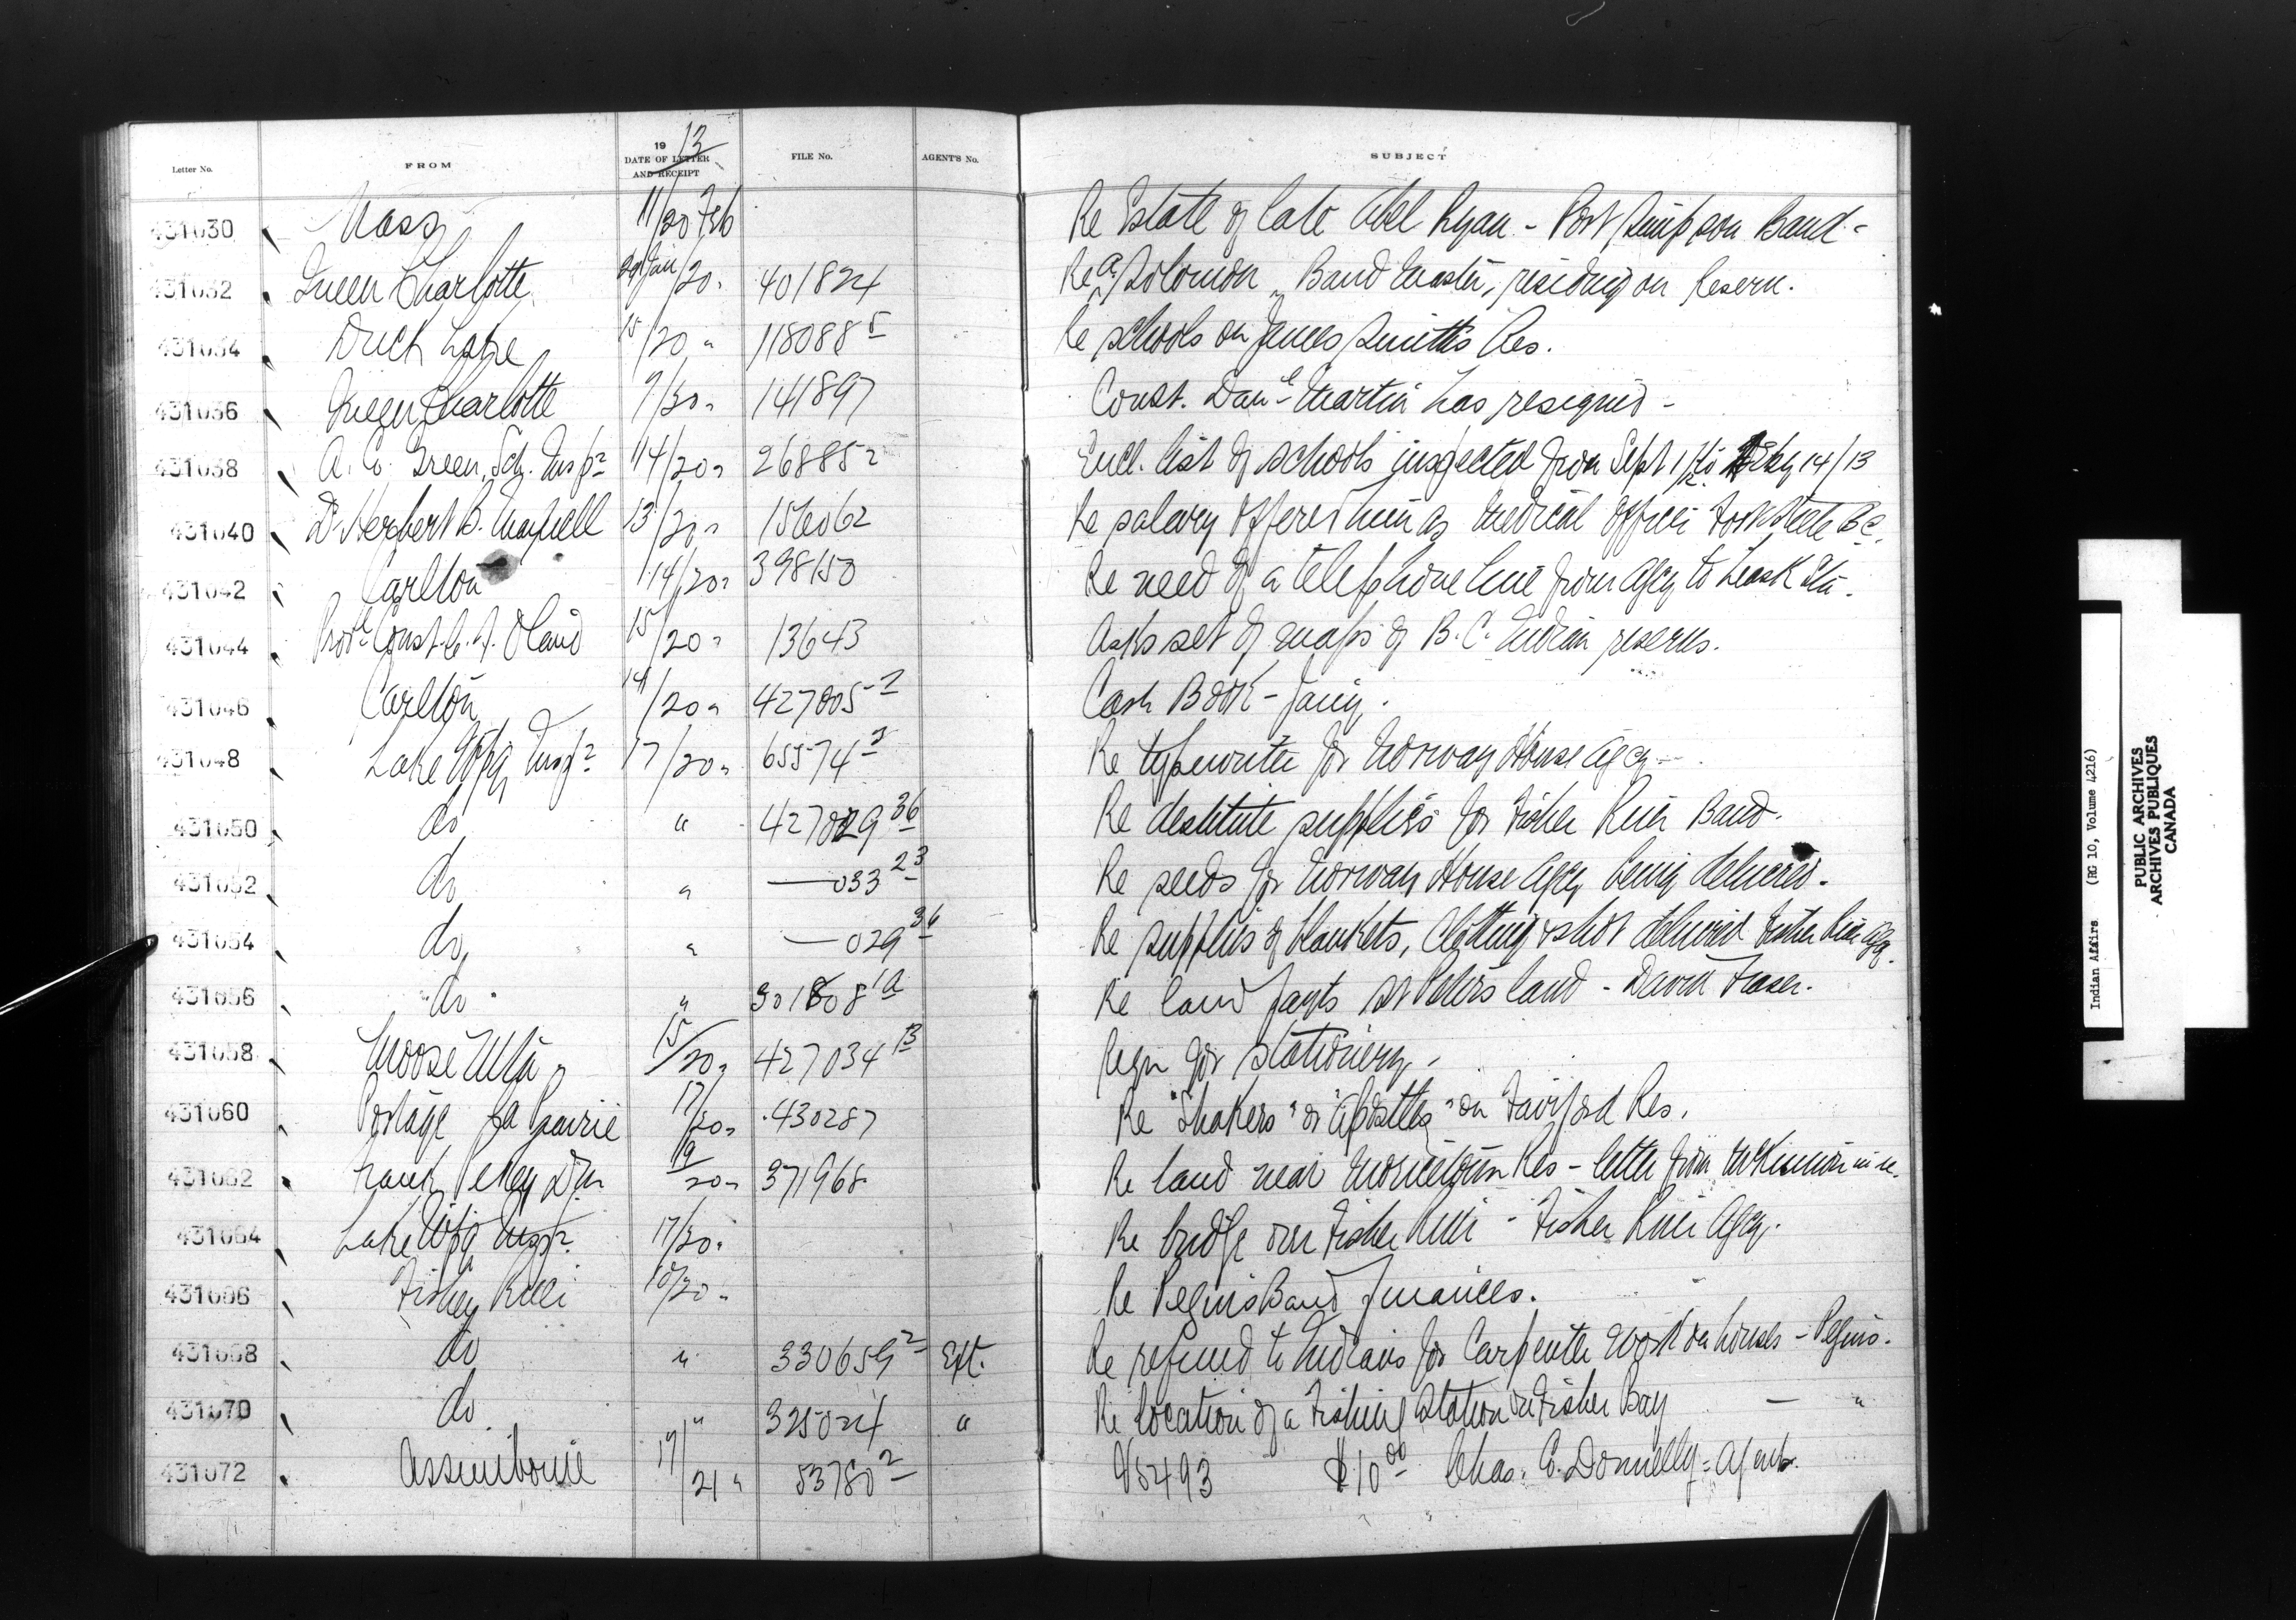 Letter No. FROM 19 13 DATE OF LETTER AND RECEIPT FILE No. AGENT'S No. SUBJECT
431030 Nass 11/20 Feb Re Estate of late Abel Ryan - Port Simpson Band -
431032 Queen Charlotte 29 Jan/20 " 401824 Re A. Solomon, Band Master, residing on Reserve.
431034 Duck Lake 15/20 " 118088 5 Re schools on James Smith's Res.
431036 Queen Charlotte 9/20 " 141897 Const. Danl Martin has resigned -
431038 A. E. Green, Sch. Inspr 14/20 " 26885 2 Encl. list of schools inspected from Sept 1/12 to Feby 14/13
431040 Dr Herbert B. 13/20 " 156062 Re salary offered him as Medical Officer B C.
431042 Carlton 14/20 " 398150 Re need of a telephone line from Agcy to Leask Stn.
431044 Provl Const. 15/20 " 13643 Asks set of maps of B.C. Indian reserves.
431046 Carlton 14/20 " 427005-2 Cash Book - Jany.
431048 Lake Wpg Inspr 17/20 " 65574 2 Re typewriter for Norway House Agcy -
431050 do " 427029 36 Re destitute supplies for Fisher River Band.
431052 do " — 033 23 Re seeds for Norway House Agcy being delivered.
431054 do " — 029 36 Re supplies of blankets, clothing & shot delivered Fisher River Agcy.
431056 do " 301808 1a Re land St Peters land - David Fraser.
431058 Moose Mtn 15/20 " 427034 13 Reqn for stationery -
431060 Portage la Prairie 17/20 " 430287 Re "Shakers" or "Apostles" on Fairford Res.
431062 Frank Pedley Dm 19/20 " 371968 Re land near Moricetown Res - letter from
431064 Lake Wpg Inspr 17/20 " Re bridge over Fisher River - Fisher River Agcy.
431066 Fisher River 15/20 " Re Peguis Band finances.
431068 do " 330659 2 Ext. Re refund to Indians for Carpenter work on houses - Peguis.
431070 do " 325024 " Re location of a Fishing Station on Fisher Bay — "
431072 Assiniboine 17/21 " 53780 2 V5493 $10 00 Chas. E. Donnelly - Agent.
Indian Affairs (RG 10, Volume 4216)
PUBLIC ARCHIVES
ARCHIVES PUBLIQUES
CANADA